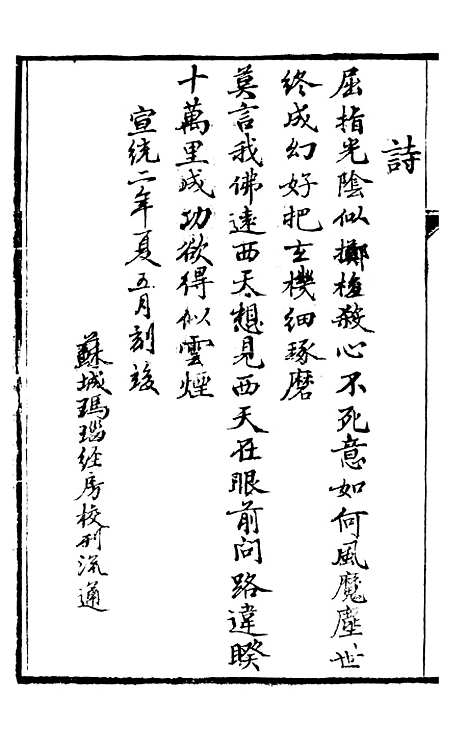 詩
屈指光陰似擲梭殺心不死意如何風魔塵世
終成幻好把玄機細琢磨
莫言我佛遠西天想見西天在眼前問路違暌
十萬里成功欲得似雲煙
宣統二年夏五月刻竣
蘇城瑪瑙經房校刊流通